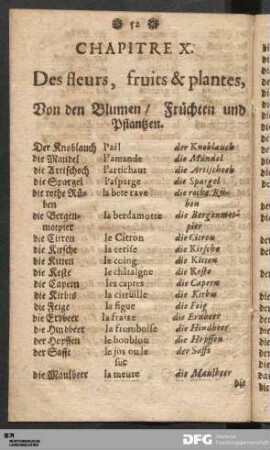 52
CHAPITRE X.
Des fleurs, fruits & plantes,
Von den Blumen / Früchten und
Pflantzen.
Der Knoblauch l'ail der Knoblauch
die Mandel l'amande die Mandel
die Artischoch l'artichaut die Artischoch
die Spargel l'asparge die Spargel
die rothe Rü- la bete rave die rothe Rü-
ben ben
die Bergen- la berdamotte die Bergenmot-
motpier pier
die Citron le Citron die Citron
die Kirsche la cerise die Kirsche
die Kitten le coing die Kitten
die Keste le chataigne die Keste
die Capern les capres die Capern
die Kirbis la citrülle die Kirbis
die Feige la figue die Feig
die Erdbeer la fraize die Erdbeer
die Hindbeer la frombolse die Hindbeer
der Hopffen le houblon die Hopffen
der Safft le jus ou le die Safft
suc
die Maulbeer la meure die Maulbeer
die
DFG Deutsche
Forschungsgemeinschaft